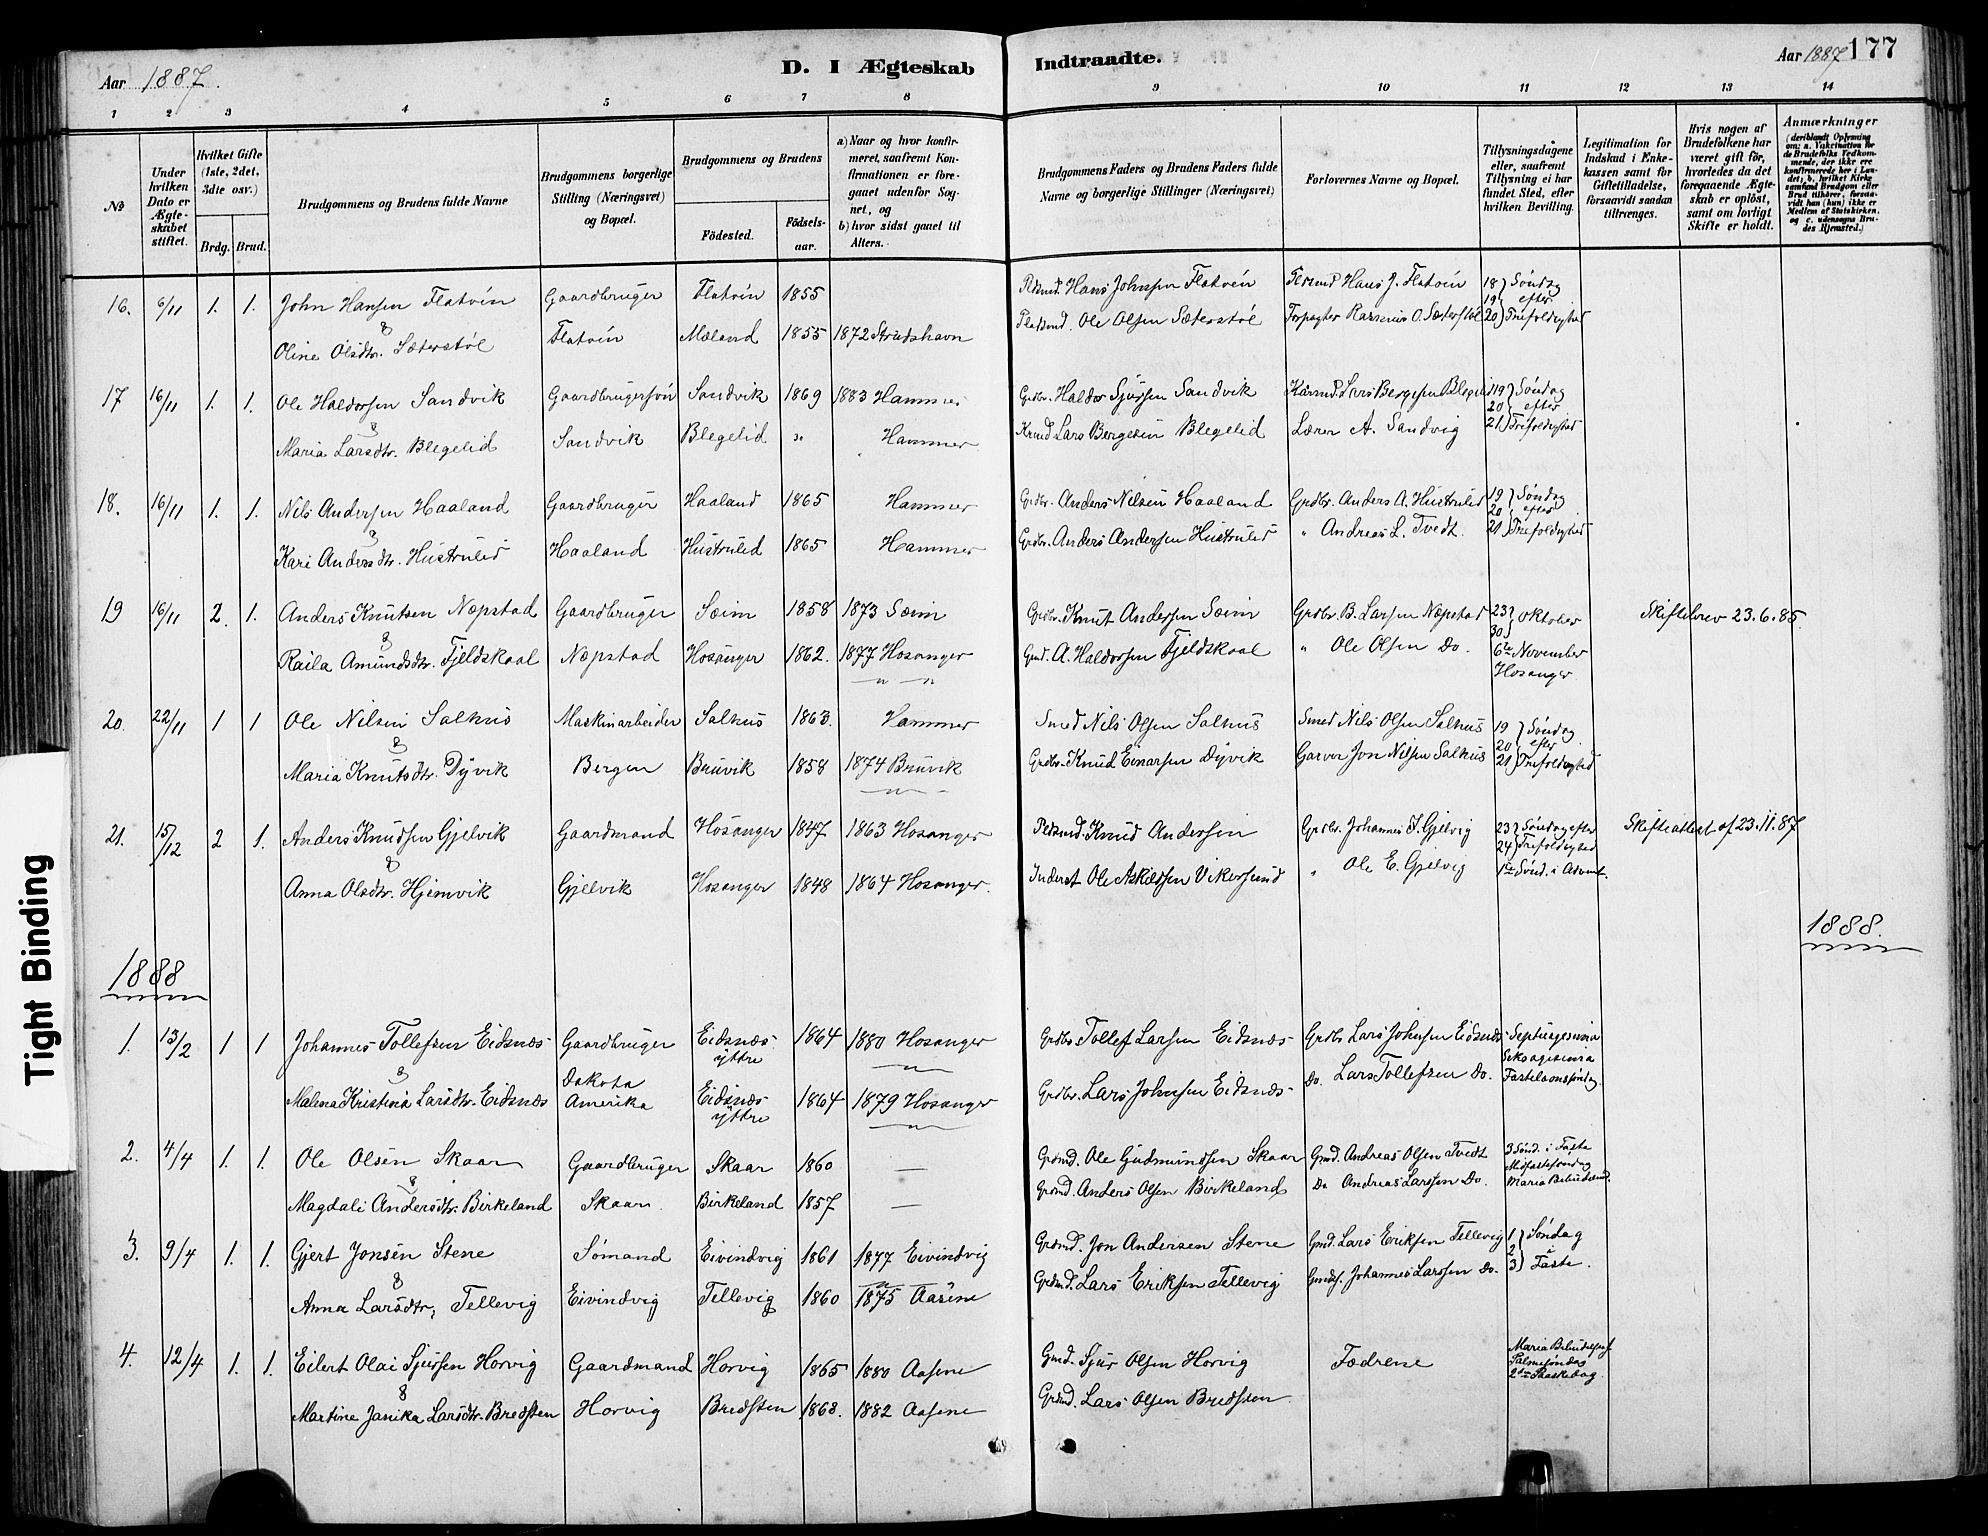 Aar 1887.
D. I Ægteskab
Indtraadte.
Aar 1887 177
1 2 3 4 5 6 7 8 9 10 11 12 13 14
No
Under hvilken Dato er Ægteskabet stiftet.
Hvilket Gifte (1ste, 2det, 3die osv.)
Brdg. Brud.
Brudgommens og Brudens fulde Navne
Brudgommens borgerlige Stilling (Næringsvei) og Bopæl.
Brudgommens og Brudens
Fødested.
Fødselsaar.
a) Naar og hvor konfirmeret, saafremt Konfirmationen er foregaaet udenfor Sognet, og
b) hvor sidst gaaet til Alters.
Brudgommens Faders og Brudens Faders fulde Navne og borgerlige Stillinger (Næringsvei)
Forlovernes Navne og Bopæl.
Tillysningsdagene eller, saafremt Tillysning ei har fundet Sted, efter hvilken Bevilling.
Legitimation for Indskud i Enkekassen samt for Giftetilladelse, forsaavidt saadan tiltrænges.
Hvis nogen af Brudefolkene har været gift før, hvorledes da det foregaaende Ægteskab er opløst, samt om lovligt Skifte er holdt.
Anmærkninger
16. 6/11 1. 1. John Hansen Flatvin Gaardbruger Flatvin 1855 Pldsmd. Hans Johnsen Flatvin Pldsmd Hans J. Flatvin 18 19 20 Søndag efter Trefoldighed
& Oline Olsdtr. Sæterstøl Flatvin Mæland 1855 1872 Strudshavn Pladsmd. Ole Olsen Sæterstøl Forpagter Rasmus O. Sæterstøl
17 16/11 1. 1. Ole Haldorsen Sandvik Gaardbrugersøn Sandvik 1869 1883 Hammer Grdbr. Haldor Sjursen Sandvik Kårmd Lars Bergesen Blegelid 19 20 21 Søndag efter Trefoldighed
& Maria Larsdtr. Blegelid Sandvik Blegelid " Hammer Krmd Lars Bergesen Blegelid Lærer A. Sandvig
18. 16/11 1. 1. Nils Andersen Haaland Gaardbruger Haaland 1865 Hammer Grdbr. Anders Nilsen Haaland Grdbr. Anders A. Hustrulid 19 20 21 Søndag efter Trefoldighed
& Kari Andersdtr. Hustrulid Haaland Hustrulid 1865 Hammer Grdbr. Anders Andersen Hustrulid " Andreas L. Tvedt.
19 16/11 2. 1. Anders Knutsen Næpstad Gaardbruger Sæim 1858 1873 Sæim Grdbr. Knut Andersen Sæim Grdbr. B. Larsen Næpstad 23 30 Oktober Skiftebrev 23.6.85.
& Raila Amundsdtr. Fjeldskaal Næpstad Hosanger 1862. 1877 Hosanger Gmd. A. Haldorsen Fjeldskaal " Ole Olsen Do. 6te November Hosanger
20. 22/11 1 1 Ole Nilsen Salhus Maskinarbeider Salhus 1863. Hammer Smed Nils Olsen Salhus Smed Nils Olsen Salhus 19 20 21 Søndag efter Trefoldighed
& Maria Knutsdtr. Dyvik Bergen Bruvik 1858 1874 Bruvik Grdbr. Knud Einarsen Dyvik Garver Jon Nilsen Salhus
21. 15/12 2 1. Anders Knudsen Gjelvik Gaardmand Hosanger 1847 1863 Hosanger Pldsmd. Knud Andersen Grdbr. Johannes I. Gjelvig 23 24 Søndag efter Trefoldighed Skifteattest af 23.11.87
& Anna Olsdtr. Hjemvik Gjelvik Hosanger 1848 1864 Hosanger. Inderst Ole Askildsen Vikersund " Ole E. Gjelvig 1ste Sønd. i Advent.
1888.
1888
1. 13/2 1 1 Johannes Tollefsen Eidsnæs Gaardbruger Eidsnæs yttre 1864 1880 Hosanger Grdbr. Tollef Larsen Eidsnæs Grdbr Lars Johnsen Eidsnæs Septuagesima Seksagesima Fastelavnssøndag
& Malena Kristina Larsdtr. Eidsnæs Dakota Amerika Eidsnæs yttre 1864 1879 Hosanger Grdbr. Lars Johnsen Eidsnæs Do. Lars Tollefsen Do.
2. 4/4 1. 1. Ole Olsen Skaar Gaardbruger Skaar 1860 — Grdmd. Ole Gudmundsen Skaar Gmd. Andreas Olsen Tvedt 3 Sønd. i Faste Midfastesøndag Maria Bebudelsesd.
& Magdali Andersdtr. Birkeland Skaar. Birkeland 1857 — Grdmd. Anders Olsen Birkeland Do Andreas Larssen Do.
3. 9/4 1. 1. Gjert Jonsen Stene Sømand Eivindvig 1861 1877 Eivindvig Grdmd. Jon Andersen Stene Gmd. Lars Eriksen Tellevig 1 2 3 Søndag i Faste.
& Anna Larsdtr. Tellevig Eivindvig Tellevig 1860 1875 Aasene Grdmd. Lars Eriksen Tellevig Gmds. Johannes Larssen Do.
4. 12/4 1. 1. Eilert Olai Sjursen Horvig Gaardmand Horvig 1865 1880 Aasene Gmd. Sjur Olsen Horvig Fædrene Maria Bebudelsesf. Palmesøndag 2den Paaskedag
& Martine Janika Larsdtr. Bredsten Horvig Bredsten 1863. 1882 Aasene Grdmd. Lars Olsen Bredsten
Tight Binding